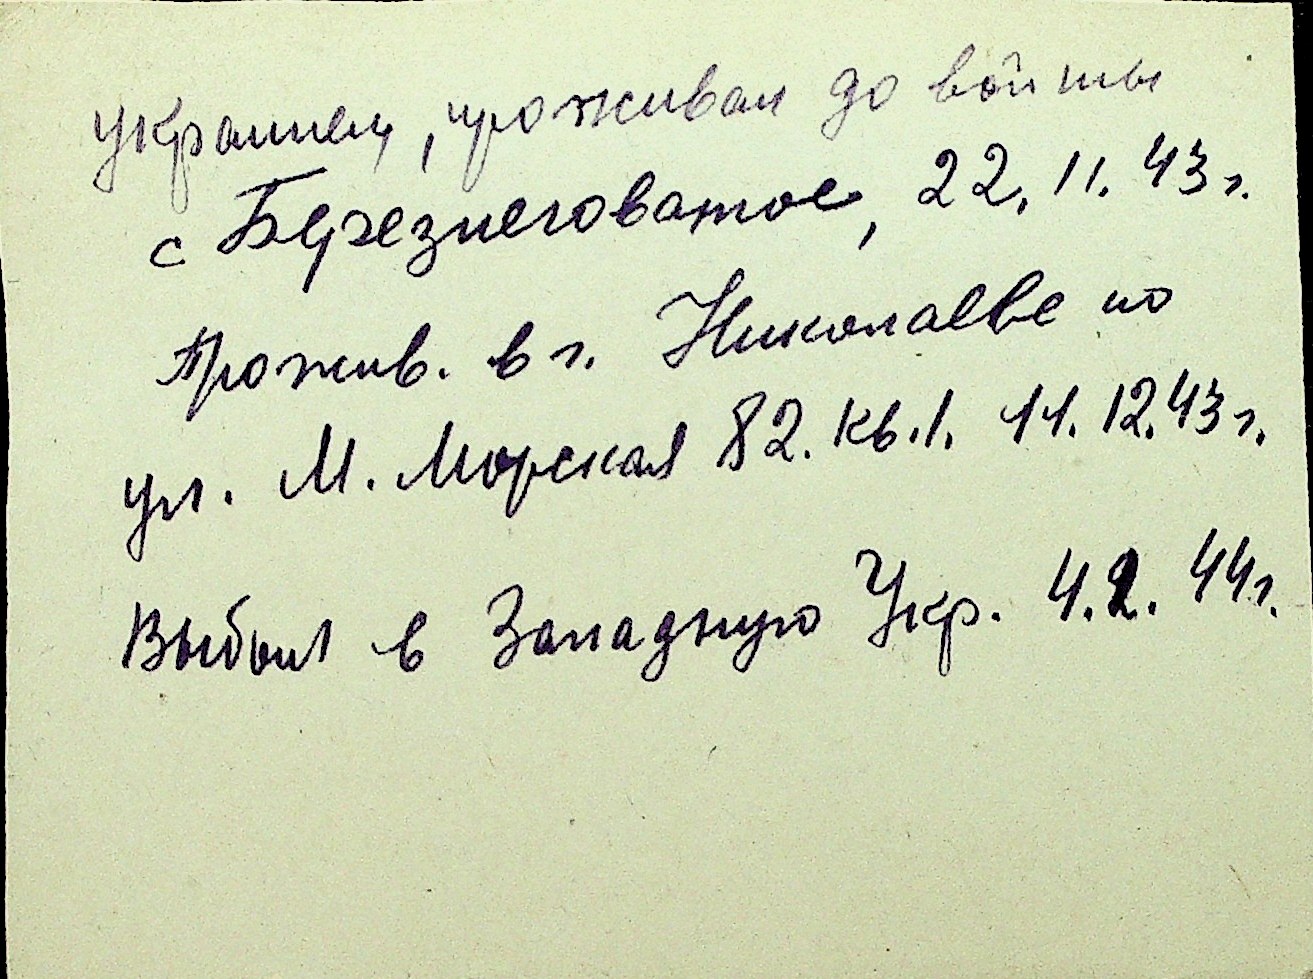 украинец, проживал до войны
с Березнеговатое, 22. 11. 43 г.
Прожив. в г. Николаеве по
ул. М. Морская 82. кв. 1. 11. 12. 43 г.
Выбыл в Западную Укр. 4. 2. 44 г.